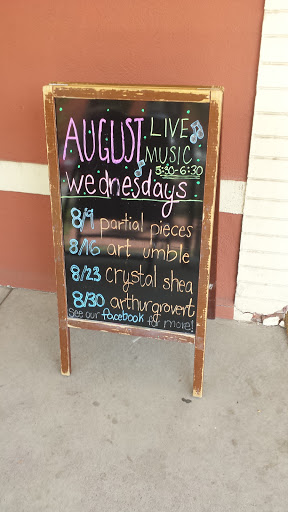 AUGUST LIVE
MUSIC
5:30-6:30
Wednesdays
8/9 partial pieces
8/16 art umble
8/23 crystal shea
8/30 arthur grovert
see our facebook for more!